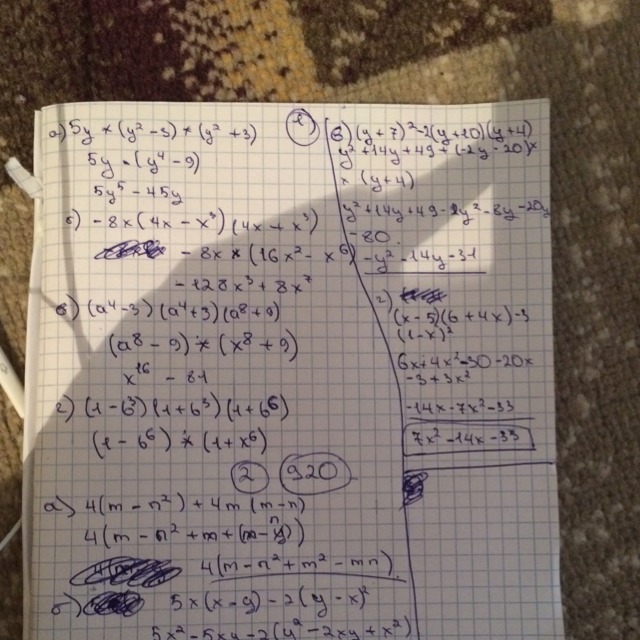 а) 5y × (y² - 3) × (y² + 3)
5y × (y⁴ - 9)
5y⁵ - 45y
б) - 8x × (4x - x³) (4x + x³)
- 8x × (16x² - x⁶)
- 128x³ + 8x⁷
в) (a⁴ - 3) (a⁴ + 3) (a⁸ + 9)
(a⁸ - 9) × (x⁸ + 9)
x¹⁶ - 81
г) (1 - b³) (1 + b³) (1 + b⁶)
(1 - b⁶) × (1 + x⁶)
2 920
а) 4(m - n²) + 4m (m - n)
4(m - n² + m + (m - n))
4(m - n² + m² - mn)
б) 5x × (x - y) - 2(y - x)²
5x² - 5xy - 2(y² - 2xy + x²)
в) (y + 7)² - 2(y + 10)(y + 4)
y² + 14y + 49 + (-2y - 20) ×
× (y + 4)
y² + 14y + 49 - 2y² - 8y - 20y
- 80
- y² - 14y - 31
г)
(x - 5)(6 + 4x) - 3
(1 - x)²
6x + 4x² - 30 - 20x
- 3 + 3x²
- 14x - 7x² - 33
7x² - 14x - 33